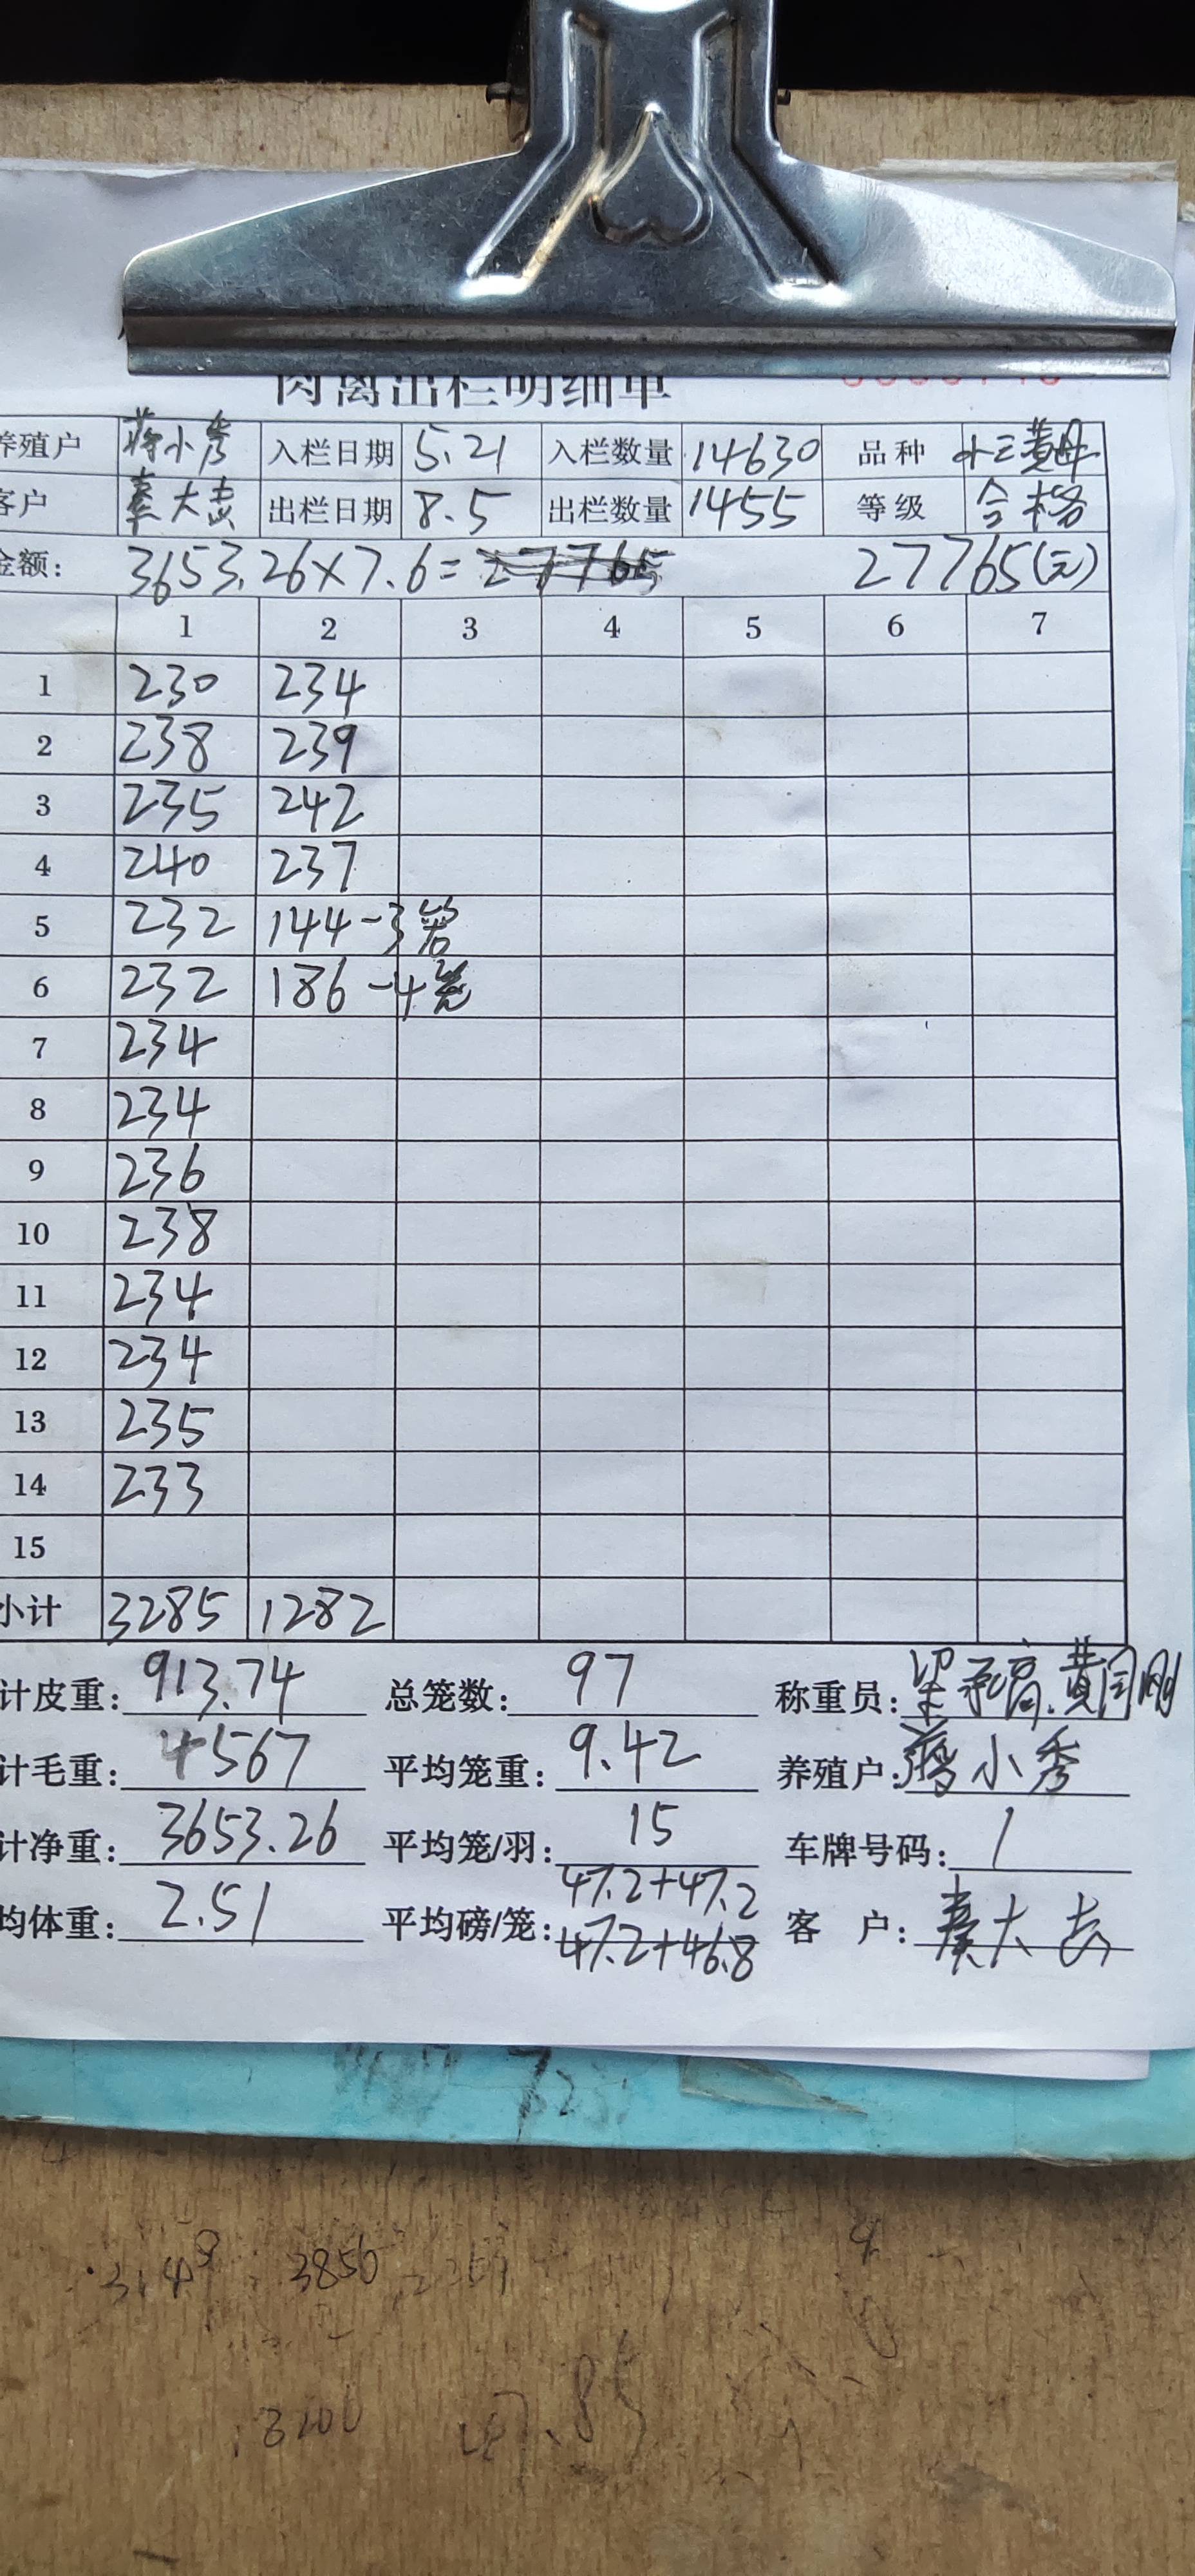 肉禽出栏明细单
养殖户 蒋小秀 入栏日期 5.21 入栏数量 14630 品种 小三黄母
客户 秦大志 出栏日期 8.5 出栏数量 1455 等级 合格
金额: 3653.26×7.6= 27765 27765(元)
1 2 3 4 5 6 7
1 230 234
2 238 239
3 235 242
4 240 237
5 232 144-3笼
6 232 186-4笼
7 234
8 234
9 236
10 238
11 234
12 234
13 235
14 233
15
小计 3285 1282
计皮重: 913.74 总笼数: 97 称重员:
计毛重: 4567 平均笼重: 9.42 养殖户: 蒋小秀
计净重: 3653.26 平均笼/羽: 15 车牌号码: 1
均体重: 2.51 平均磅/笼: 47.2+47.2 47.2+46.8 客 户: 秦大志
3850